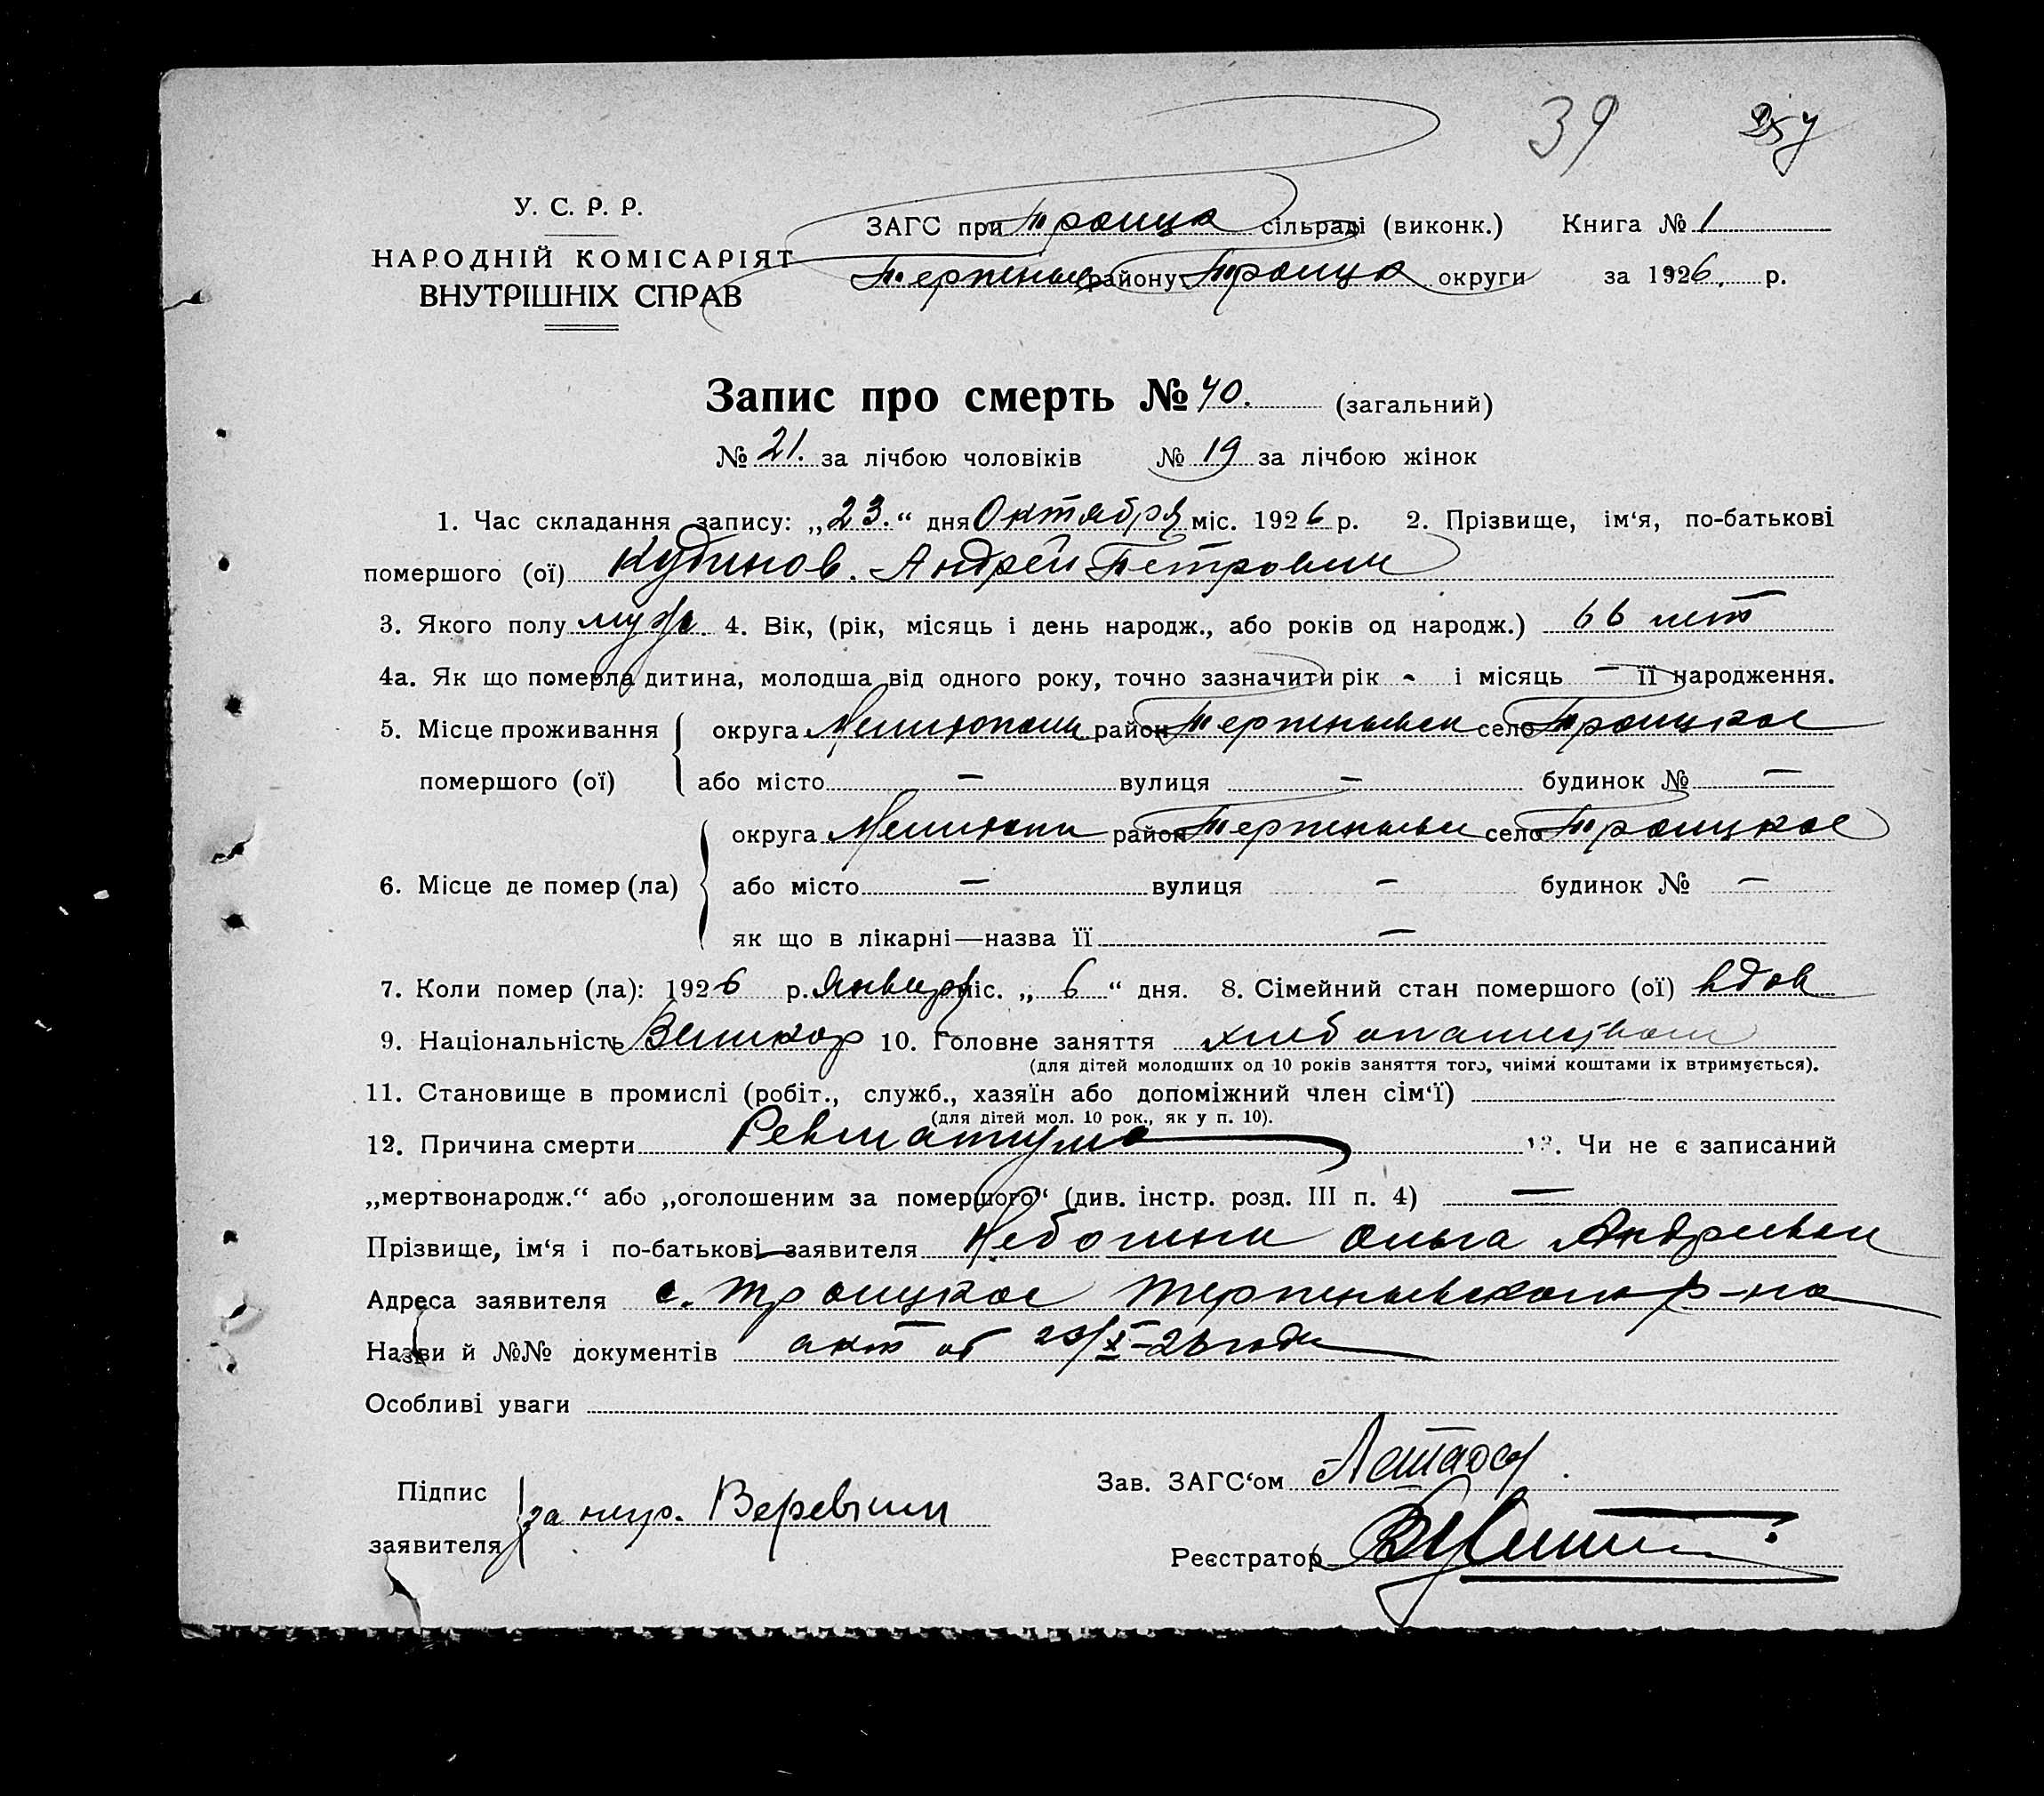 39
У. С. Р. Р.
НАРОДНІЙ КОМІСАРІЯТ
ВНУТРІШНІХ СПРАВ
ЗАГС при Троицк сільраді (виконк.) Книга № 1
району Троицк округи за 1926 р.
Запис про смерть № 40. (загальний)
№ 21. за лічбою чоловіків № 19 за лічбою жінок
1. Час складання запису: „23.“ дня Октября міс. 1926 р. 2. Прізвище, ім‘я, по-батькові
помершого (ої) Кудинов. Андрей Петрович
3. Якого полу муж. 4. Вік, (рік, місяць і день народж., або років од народж.) 66 лет
4а. Як що померла дитина, молодша від одного року, точно зазначити рік - і місяць — її народження.
5. Місце проживання округа район село Троицкое
помершого (ої) або місто — вулиця — будинок № —
округа район село Троицкое
6. Місце де помер (ла) або місто — вулиця — будинок № —
як що в лікарні—назва її —
7. Коли помер (ла): 1926 р. Январ міс. „6“ дня. 8. Сімейний стан помершого (ої) вдов
9. Національність Великор 10. Головне заняття
(для дітей молодших од 10 років заняття того, чиїми коштами їх втримується).
11. Становище в промислі (робіт., служб., хазяїн або допоміжний член сім‘ї)
(для дітей мол. 10 рок., як у п. 10).
12. Причина смерти Ревматизма 13. Чи не є записаний
„мертвонародж.“ або „оголошеним за помершого“ (див. інстр. розд. III п. 4) —
Прізвище, ім‘я і по-батькові заявителя Ольга Андреевна
Адреса заявителя с. Троицкое Терпеньевского р-на
Назви й №№ документів акт от 23/X-26 года
Особливі уваги
Підпис
заявителя за негр. Веревкин
Зав. ЗАГС‘ом
Реєстратор